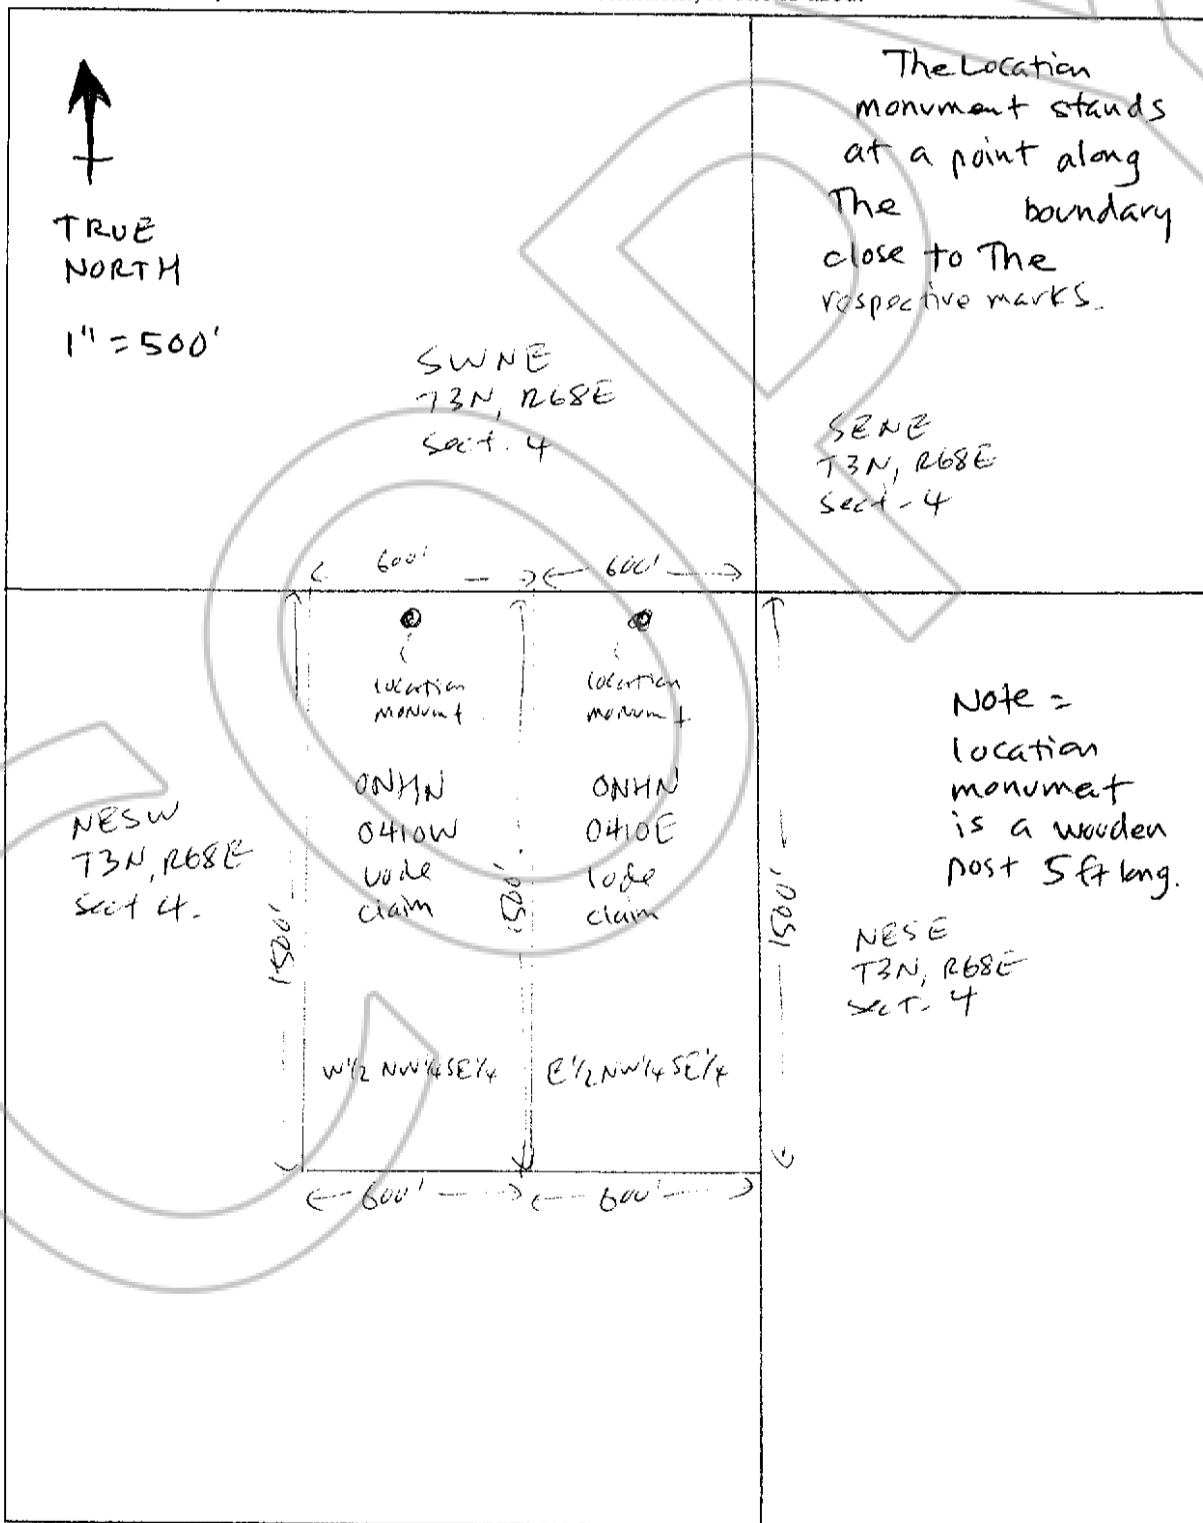 The Location
monument stands
at a point along
The boundary
close to The
respective marks.
TRUE
NORTH
1" = 500'
SWNE
T3N, R68E
sect. 4
SENE
T3N, R68E
sect - 4
600'
600'
location
monumt
location
monumt
ONHN
0410W
lode
claim
ONHN
0410E
lode
claim
NESW
T3N, R68E
sect 4.
1500'
1500'
1500'
Note =
location
monumet
is a wooden
post 5 ft long.
NESE
T3N, R68E
sect - 4
W1/2 NW1/4 SE1/4
E1/2 NW1/4 SE1/4
600'
600'
COP